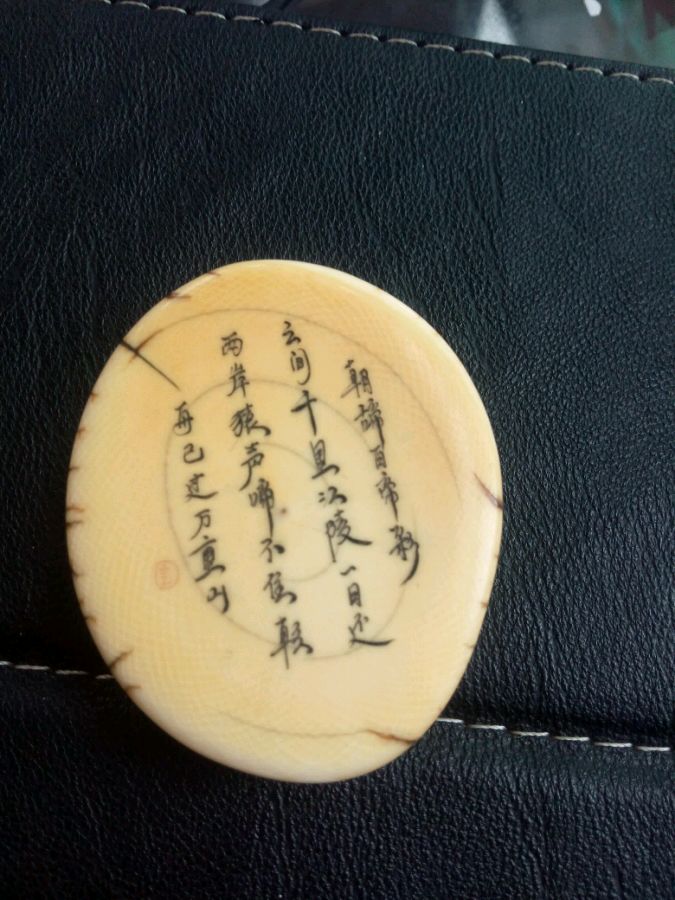 朝辞白帝彩
云间千里江陵一日还
两岸猿声啼不住轻
舟已过万重山